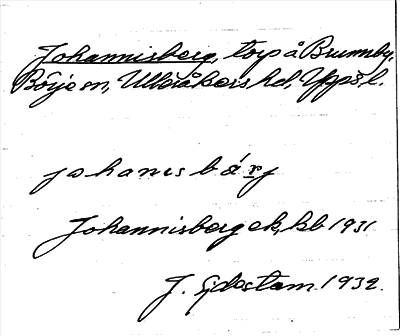 Johannisberg, torp å Brunnby,
Börje sn, Ulleråkers hd, Upps. l.
johanısbárj
Johannisberg ek, kb 1931
J. Gidestam 1932.